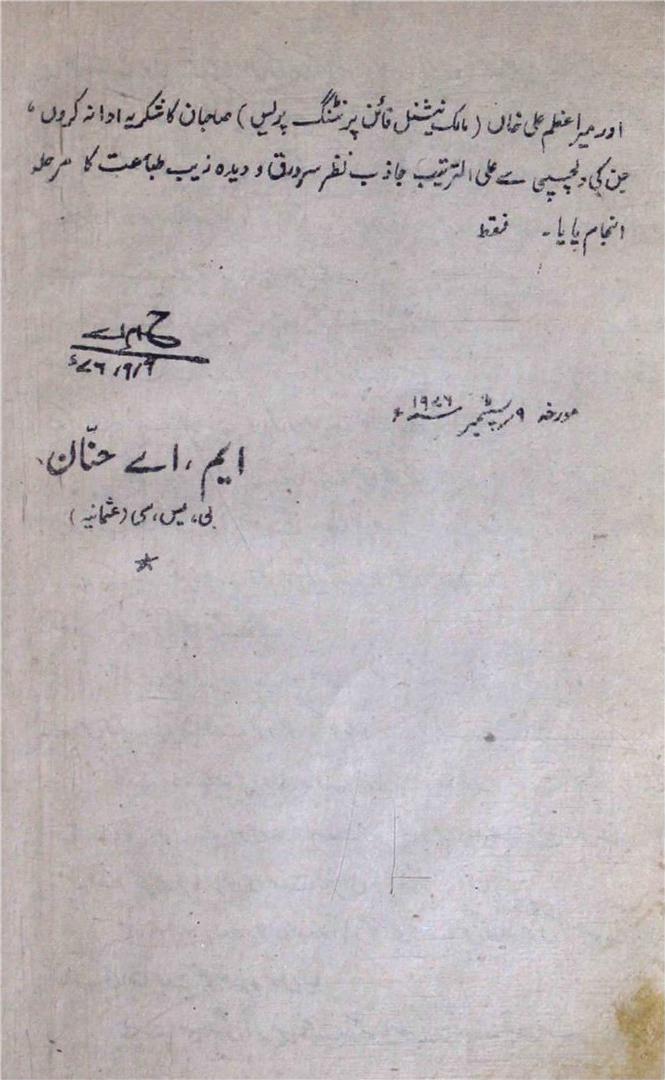 اور میر اعظم علی خاں (مالک نیشنل فائن پرنٹنگ پریس) صاحبان کا شکریہ ادا نہ کروں،
جن کی دلچسپی سے علی الترتیب جاذب نظر سرورق و دیدہ زیب طباعت کا مرحلہ
انجام پایا۔ فقط
۹/۹/۷۶ء
مورخہ ۹؍ سپٹمبر ۱۹۷۶ء
ایم، اے حنّان
بی، یس، سی (عثمانیہ)